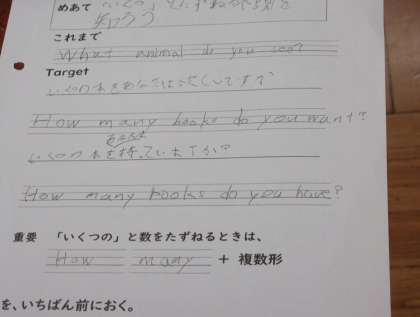 めあて 「いくつの」とたずねる表現を
知ろう
これまで
What animal do you see?
Target
いくつの本をあなたはほしいですか
How many books do you want?
あなたは
いくつの本を持っていますか?
How many books do you have?
重要 「いくつの」と数をたずねるときは、
How many + 複数形
を、いちばん前におく。